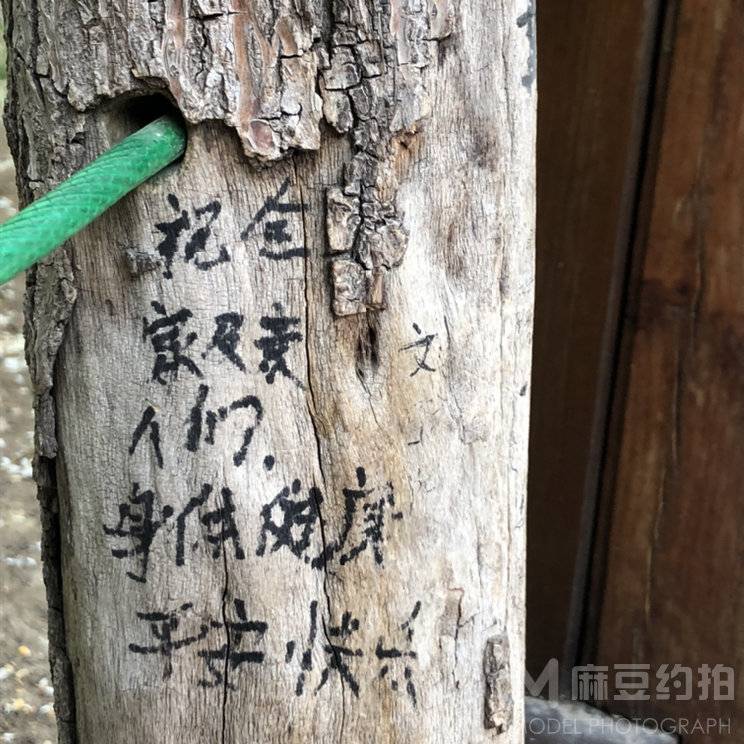 祝全
家及
文
人们,
身体健康
平安快乐
M 麻豆约拍
ODEL PHOTOGRAPH